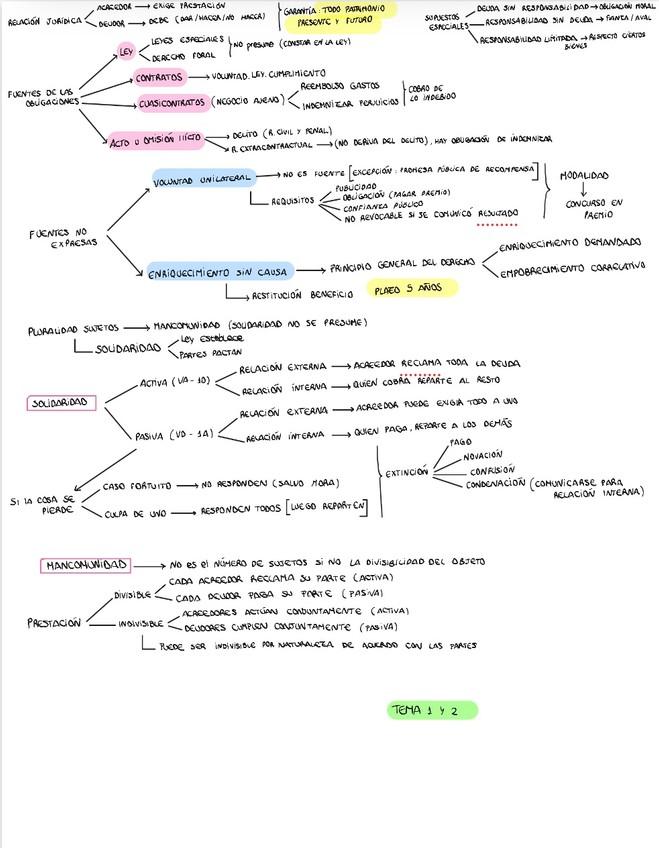 RELACIÓN JURÍDICA
ACREEDOR → EXIGE PRESTACIÓN
DEUDOR → DEBE (DAR/HACER/NO HACER)
GARANTÍA: TODO PATRIMONIO
PRESENTE Y FUTURO
SUPUESTOS
ESPECIALES
DEUDA SIN RESPONSABILIDAD → OBLIGACIÓN MORAL
RESPONSABILIDAD SIN DEUDA → FIANZA/AVAL
RESPONSABILIDAD LIMITADA → RESPECTO CIERTOS
BIENES
FUENTES DE LAS
OBLIGACIONES
LEY
LEYES ESPECIALES
DERECHO FORAL
NO PRESUME (CONSTAR EN LA LEY)
CONTRATOS → VOLUNTAD. LEY. CUMPLIMIENTO
CUASICONTRATOS (NEGOCIO AJENO)
REEMBOLSO GASTOS
INDEMNIZAR PERJUICIOS
COBRO DE
LO INDEBIDO
ACTO U OMISIÓN ILÍCITO
DELITO (R. CIVIL Y PENAL)
R. EXTRACONTRACTUAL → (NO DERIVA DEL DELITO), HAY OBLIGACIÓN DE INDEMNIZAR
FUENTES NO
EXPRESAS
VOLUNTAD UNILATERAL → NO ES FUENTE [EXCEPCIÓN: PROMESA PÚBLICA DE RECOMPENSA]
REQUISITOS
PUBLICIDAD
OBLIGACIÓN (PAGAR PREMIO)
CONFIANZA PÚBLICO
NO REVOCABLE SI SE COMUNICÓ RESULTADO
MODALIDAD
↓
CONCURSO EN
PREMIO
ENRIQUECIMIENTO SIN CAUSA → PRINCIPIO GENERAL DEL DERECHO
ENRIQUECIMIENTO DEMANDADO
EMPOBRECIMIENTO CORRELATIVO
RESTITUCIÓN BENEFICIO
PLAZO 5 AÑOS
PLURALIDAD SUJETOS → MANCOMUNIDAD (SOLIDARIDAD NO SE PRESUME)
SOLIDARIDAD
LEY ESTABLECE
PARTES PACTAN
SOLIDARIDAD
ACTIVA (VA - 1D)
RELACIÓN EXTERNA → ACREEDOR RECLAMA TODA LA DEUDA
RELACIÓN INTERNA → QUIEN COBRA REPARTE AL RESTO
PASIVA (VD - 1A)
RELACIÓN EXTERNA → ACREEDOR PUEDE EXIGIR TODO A UNO
RELACIÓN INTERNA → QUIEN PAGA, REPARTE A LOS DEMÁS
SI LA COSA SE
PIERDE
CASO FORTUITO → NO RESPONDEN (SALVO MORA)
CULPA DE UNO → RESPONDEN TODOS [LUEGO REPARTEN]
EXTINCIÓN
PAGO
NOVACIÓN
CONFUSIÓN
CONDENACIÓN (COMUNICARSE PARA
RELACIÓN INTERNA)
MANCOMUNIDAD → NO ES EL NÚMERO DE SUJETOS SI NO LA DIVISIBILIDAD DEL OBJETO
PRESTACIÓN
DIVISIBLE
CADA ACREEDOR RECLAMA SU PARTE (ACTIVA)
CADA DEUDOR PAGA SU PARTE (PASIVA)
INDIVISIBLE
ACREEDORES ACTÚAN CONJUNTAMENTE (ACTIVA)
DEUDORES CUMPLEN CONJUNTAMENTE (PASIVA)
PUEDE SER INDIVISIBLE POR NATURALEZA DE ACUERDO CON LAS PARTES
TEMA 1 Y 2